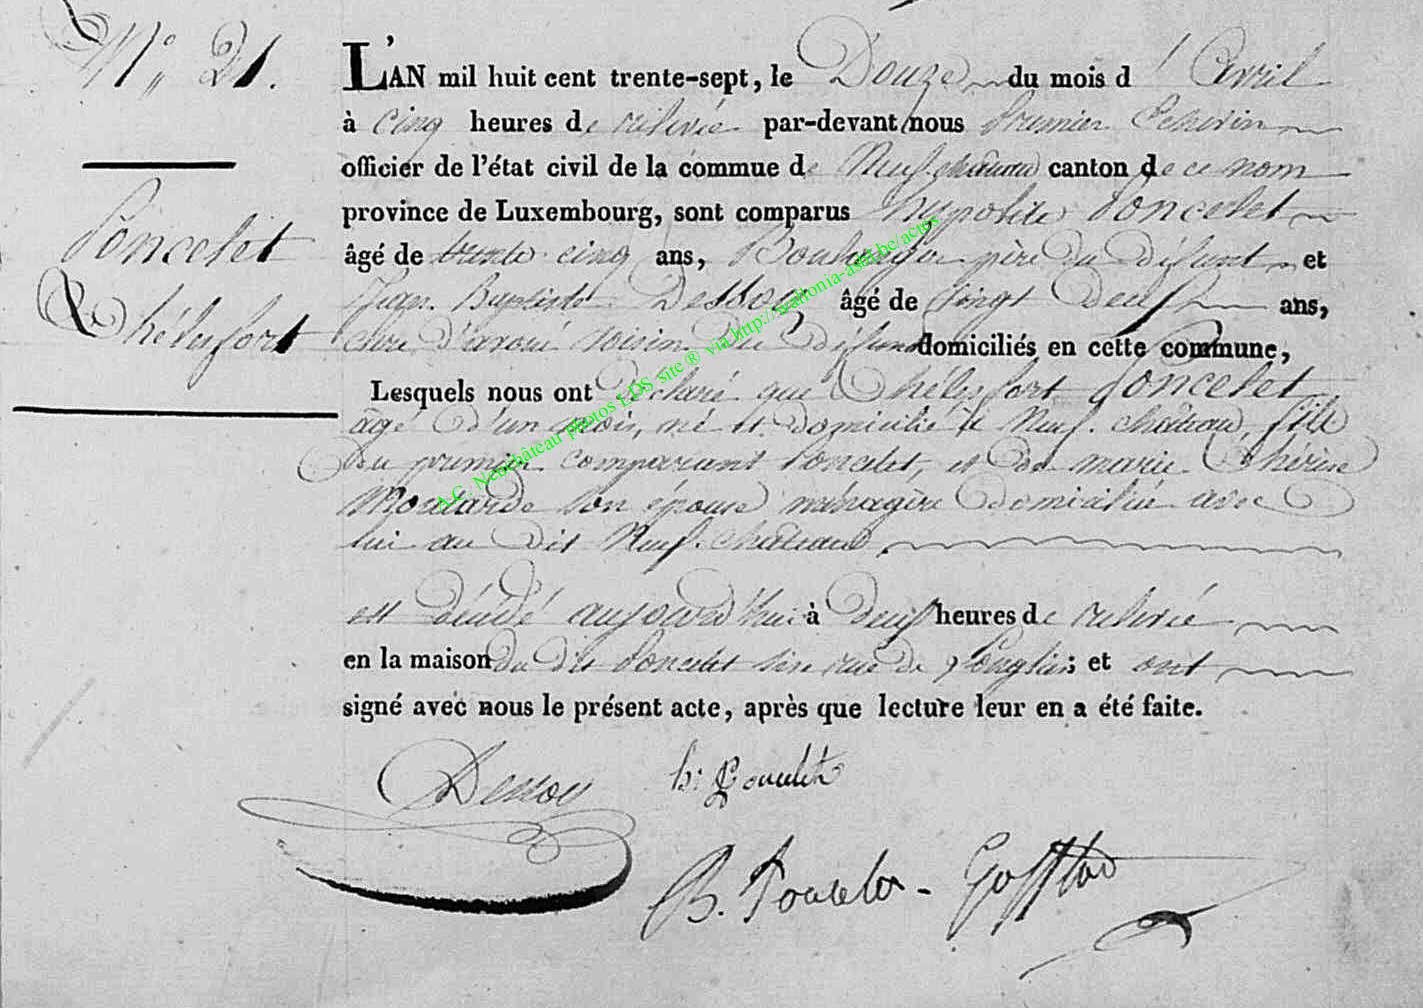 N° 21.
L'AN mil huit cent trente-sept, le Douze du mois d'Avril
à cinq heures de relevée par-devant nous Premier Echevin
officier de l'état civil de la commue de Neufchateau canton de ce nom
province de Luxembourg, sont comparus hypolite Poncelet
Poncelet
âgé de trente cinq ans, Boulanger père du défunt et
Jean Baptiste Dessoy âgé de vingt Deux ans,
Thélesfort
clerc d'avoué voisin du défunt domiciliés en cette commune,
Lesquels nous ont déclaré que Thélesfort Poncelet
âgé d'un mois, né et domicilié à Neuf-château, fils
du premier comparant Poncelet, et de marie Thérèse
Moutarde son épouse ménagère domiciliée avec
lui au dit Neuf-chateau.
est décédé aujourd'hui à deux heures de relevée
en la maison du dit Poncelet sise rue de Longlier; et ont
signé avec nous le présent acte, après que lecture leur en a été faite.
Dessoy h. Poncelet
B. Poncelet
A.C. Neufchâteau photos LDS site ® via http://wallonia-asbl.be/actes